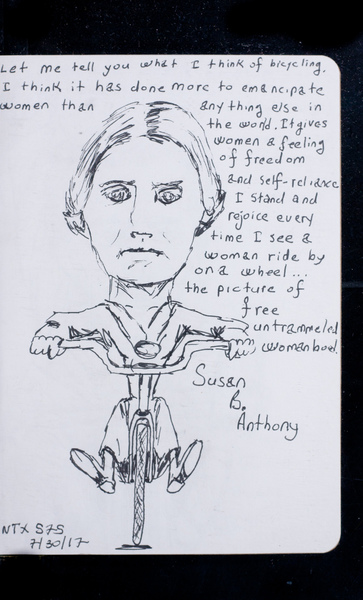 Let me tell you what I think of bicycling.
I think it has done more to emancipate
women than any thing else in
the world. It gives
women a feeling
of freedom
and self-reliance
I stand and
rejoice every
time I see a
woman ride by
on a wheel...
the picture of
free
untrammeled
womanhood.
Susan
B.
Anthony
NTX 575
7/30/17